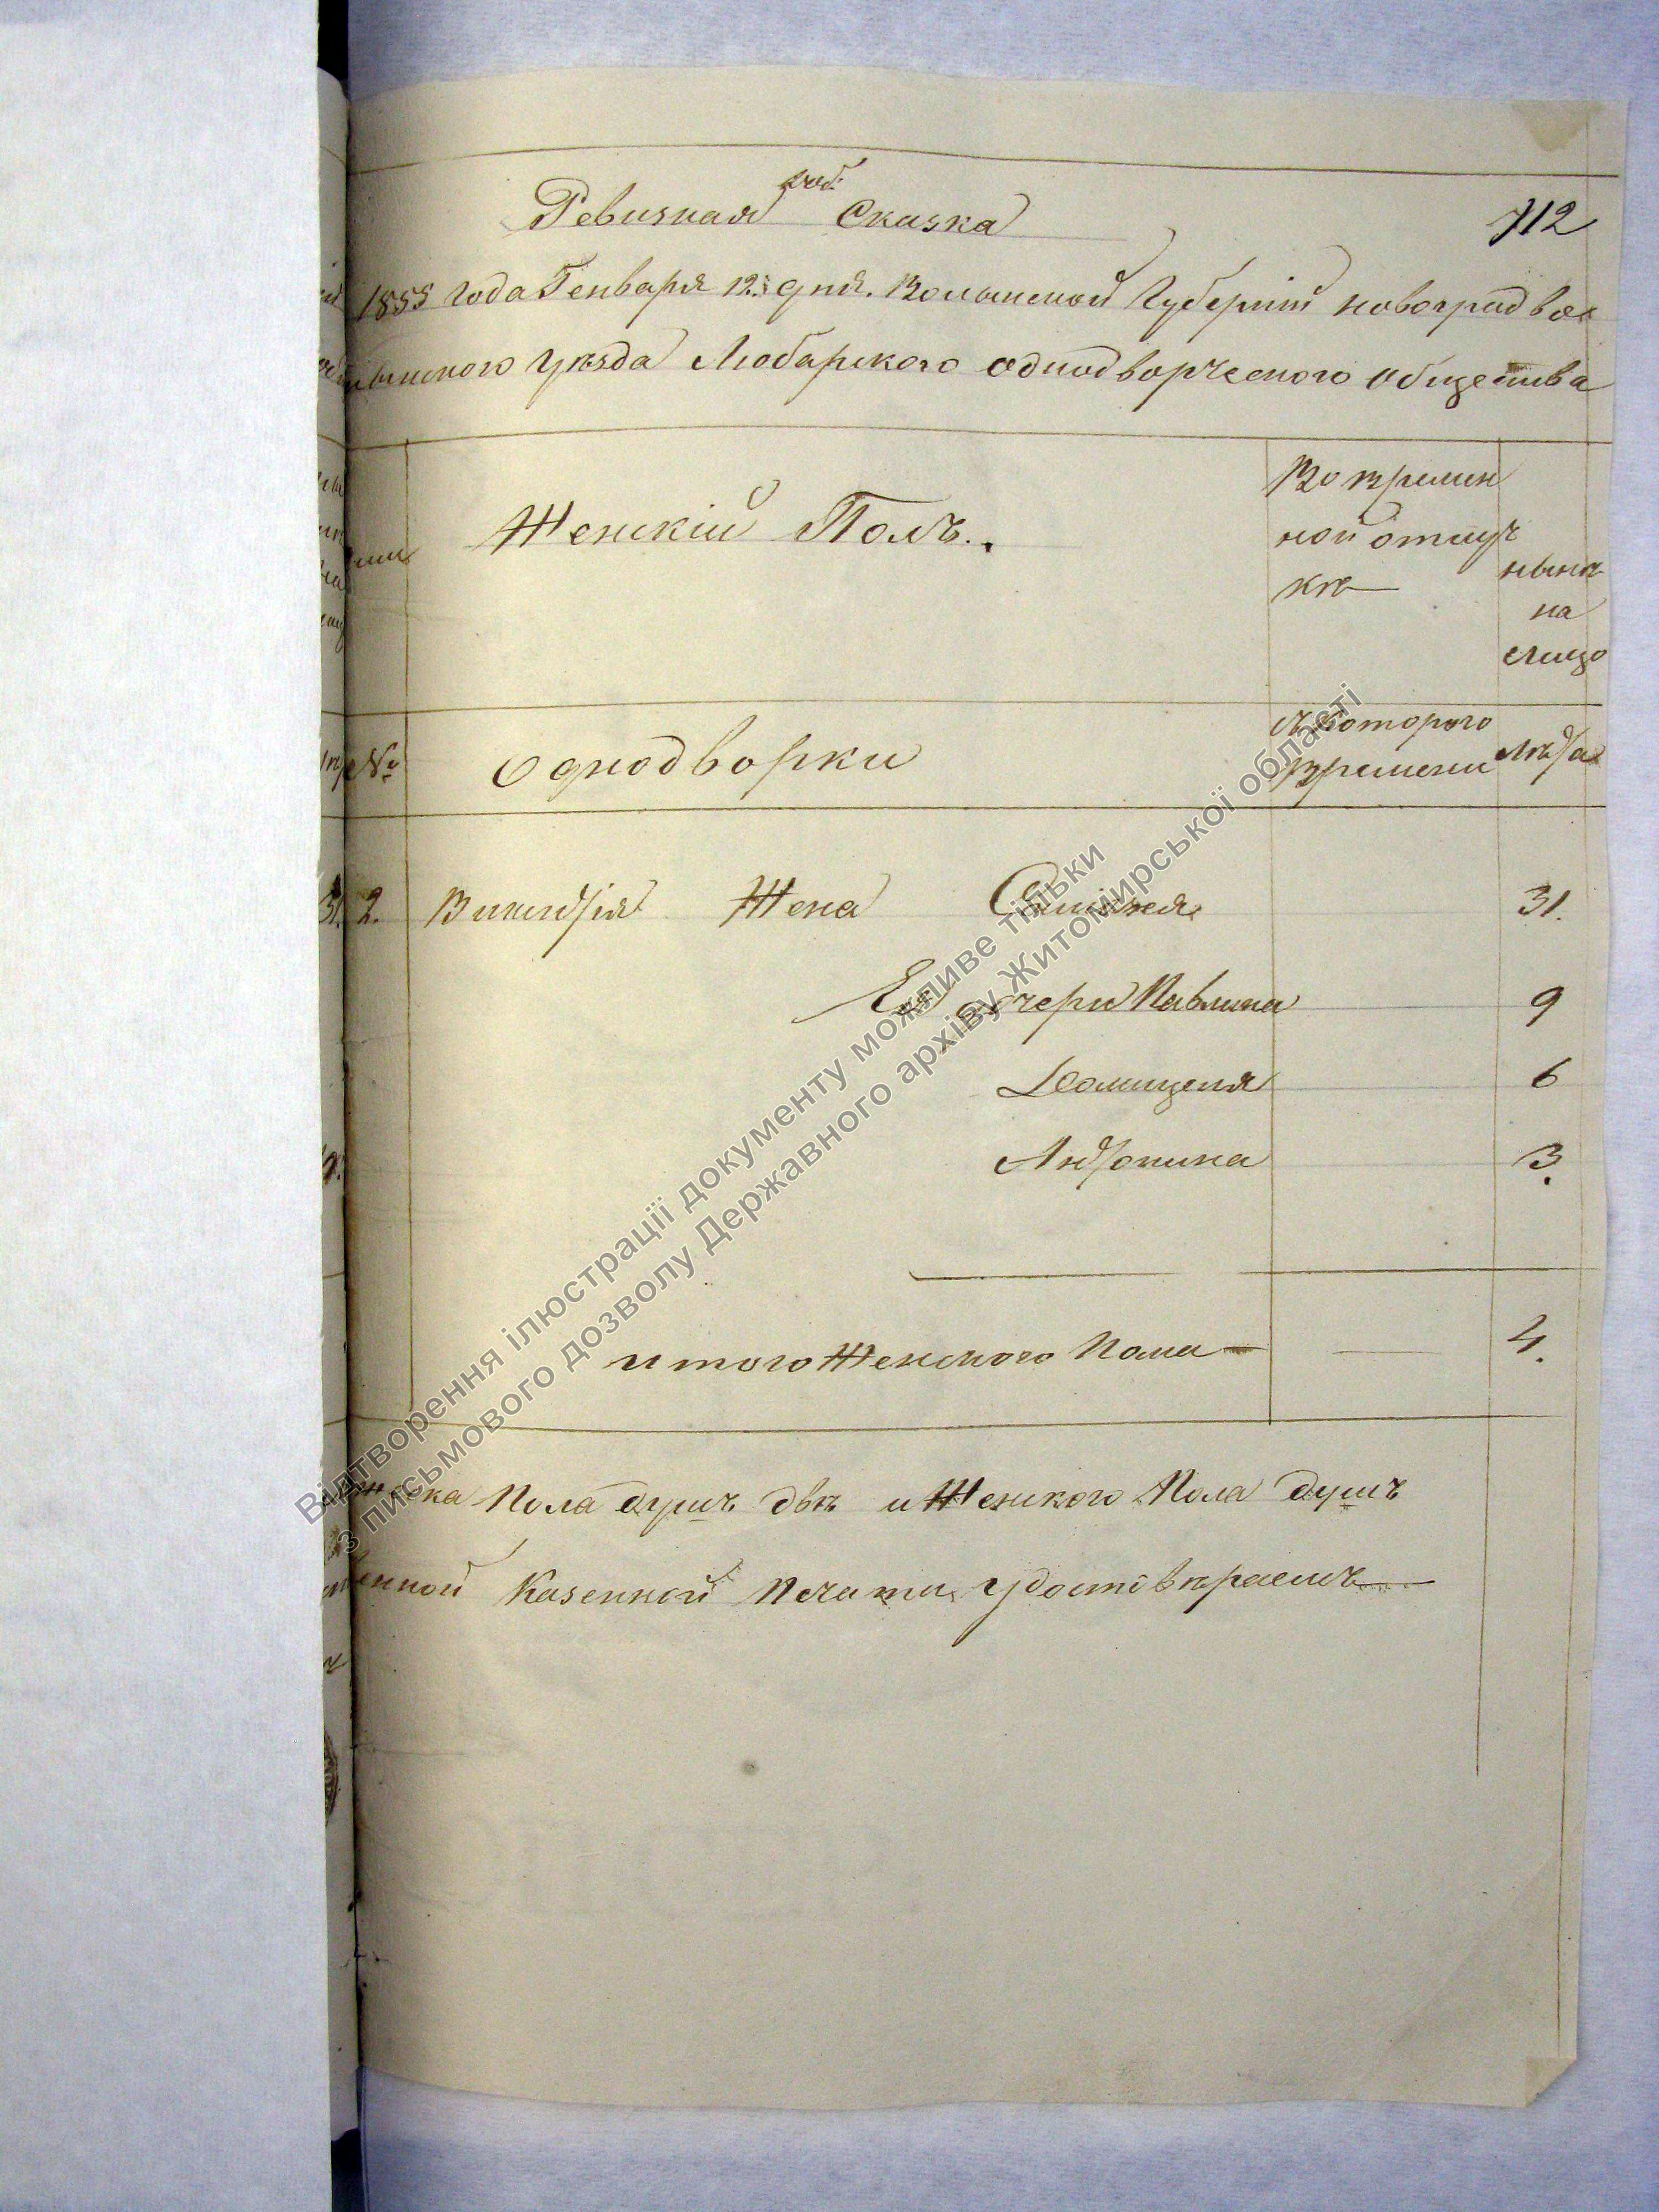 доб.
Ревизная Сказка
712
1855 года Генваря 12. дня. Волынской Губернiи новоградво
лынского Уѣзда Любарского однодворческого общества
Женскiй Полъ.
Во времен
ной отлуч
кѣ
нынѣ
на
лицо
№
Однодворки
съ которого
времени
Лѣта
2. Викентiя Жена 31.
Его дочери Павлина 9
Домицеля 6
Антонина 3.
итого Женского Пола 4.
Пола душъ двѣ и Женского Пола душъ
Казенной Печати удостовѣряемъ
Відтворення ілюстрації документу можливе тільки
з письмового дозволу Державного архіву Житомирської області